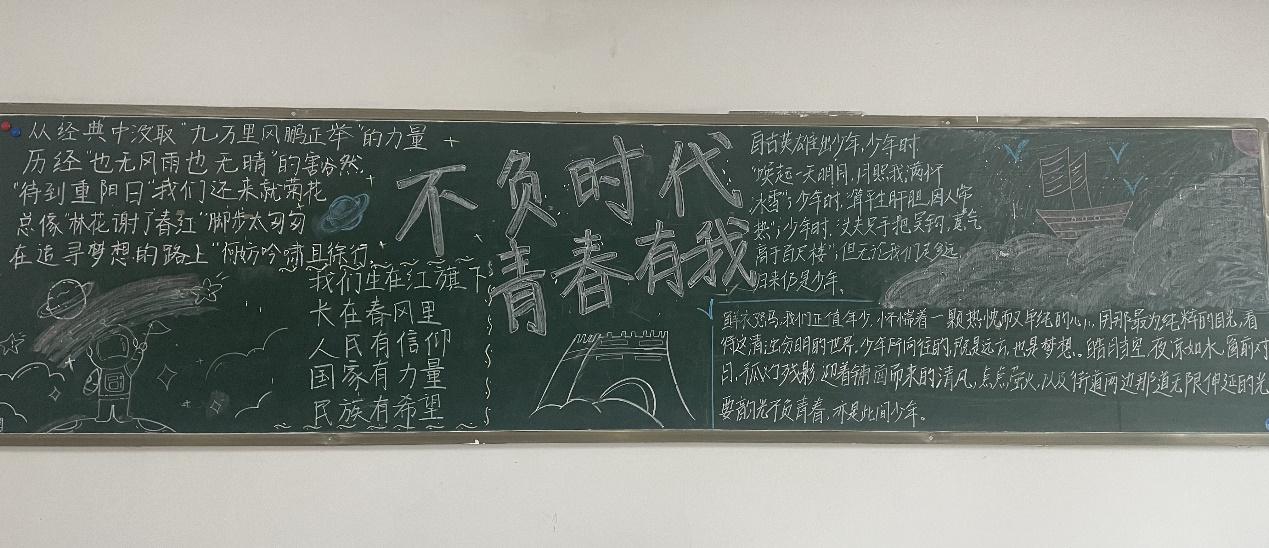 从经典中汲取"九万里风鹏正举"的力量
历经"也无风雨也无晴"的豁然
"待到重阳日"我们还来就菊花
总像"林花谢了春红"脚步太匆匆
在追寻梦想的路上"何妨吟啸且徐行
不负时代
青春有我
我们生在红旗下
长在春风里
人民有信仰
国家有力量
民族有希望
自古英雄出少年,少年时
"唤起一天明月,月照我满怀
冰雪";少年时,"平生肝胆,因人常
热";少年时,"丈夫只手把吴钩,意气
高于百尺楼";但无论我们历多远,
归来仍是少年。
鲜衣怒马,我们正值年少,怀揣着一颗热忱而又单纯的心,用那最为纯粹的目光,看
待这清浊分明的世界,少年所向往的,既是远方,也是梦想。皓月当空,夜凉如水,窗前对
日,孤灯残影,迎着铺面而来的清风,点点萤火,以及街道两边那道无限伸延的光
要韵光不负青春,亦是此间少年。